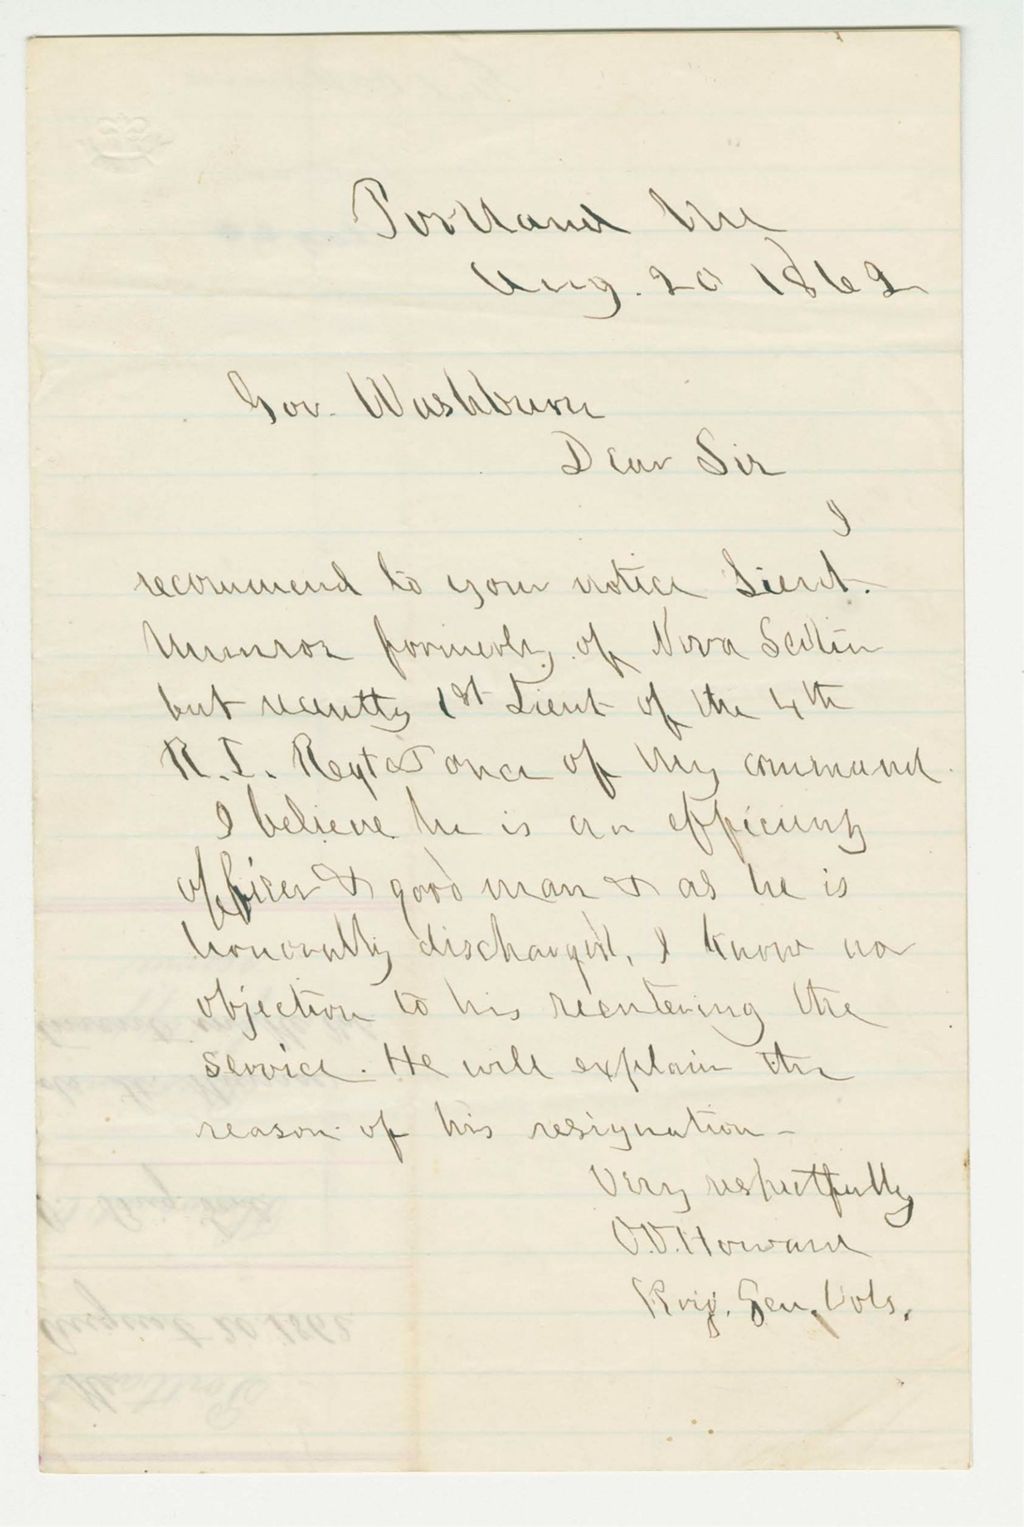 Portland Me
Aug. 20 1862
Gov. Washburn
Dear Sir
I
recommend to your notice Lieut.
Munroe formerly of Nova Scotia
but recently 1st Lieut of the 4th
R.I. Regt & once of my command.
I believe he is an efficient
officer & good man & as he is
honorably discharged, I know no
objection to his reentering the
service. He will explain the
reason of his resignation -
Very respectfully
O.O. Howard
Brig. Gen. Vols.
August 20 1862